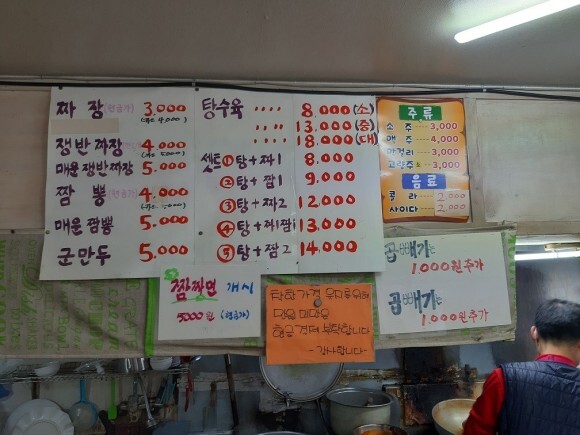 짜장(현금가) 3.000
(카드 4,000)
쟁반짜장 4.000
(카드 5000)
매운쟁반짜장 5.000
짬뽕(현금가) 4.000
매운짬뽕 5.000
군만두 5.000
탕수육 〃〃 8.000(소)
〃〃 13.000(중)
〃〃 18.000(대)
셋트①탕+짜1 8.000
②탕+짬1 9.000
③탕+짜2 12.000
④탕+짜1짬1 13.000
⑤탕+짬2 14.000
주류
소주 3,000
맥주 4,000
막걸리 3,000
고량주소 3,000
음료
콜라 2,000
사이다 2,000
짬짜면 개시
5000원 (현금가)
현금 결제 부탁합니다
-감사합니다-
곱빼기는
1000원추가
곱빼기는
1.000원추가